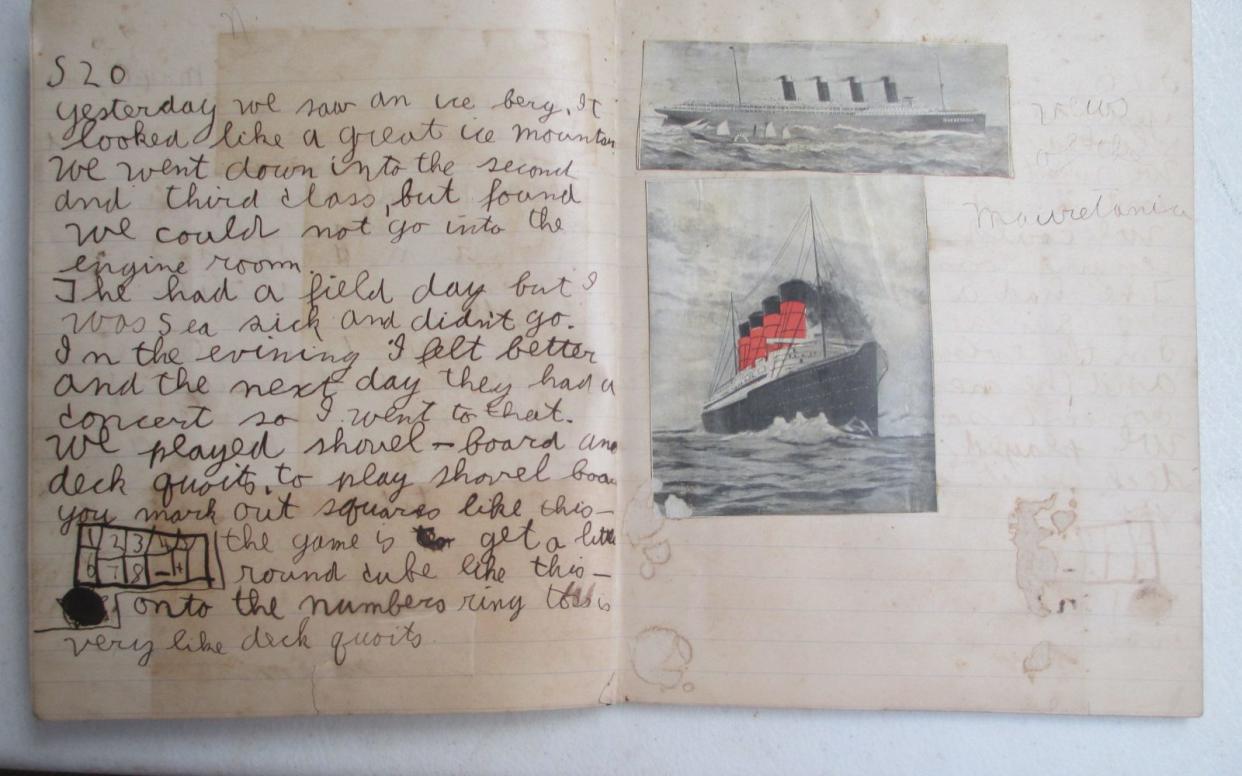 S 20
yesterday we saw an ice berg. It
looked like a great ice mountain
We went down into the second
and third class, but found
we could not go into the
engine room.
The had a field day but I
was sea sick and didn't go.
In the evining I felt better
and the next day they had a
concert so I went to that.
We played shovel - board and
deck quoits. to play shovel boa
you mark out squares like this -
1 2 3 4
6 7 8 - +
the game is to get a little
round cube like this -
onto the numbers ring toss is
very like deck quoits
Mauretania